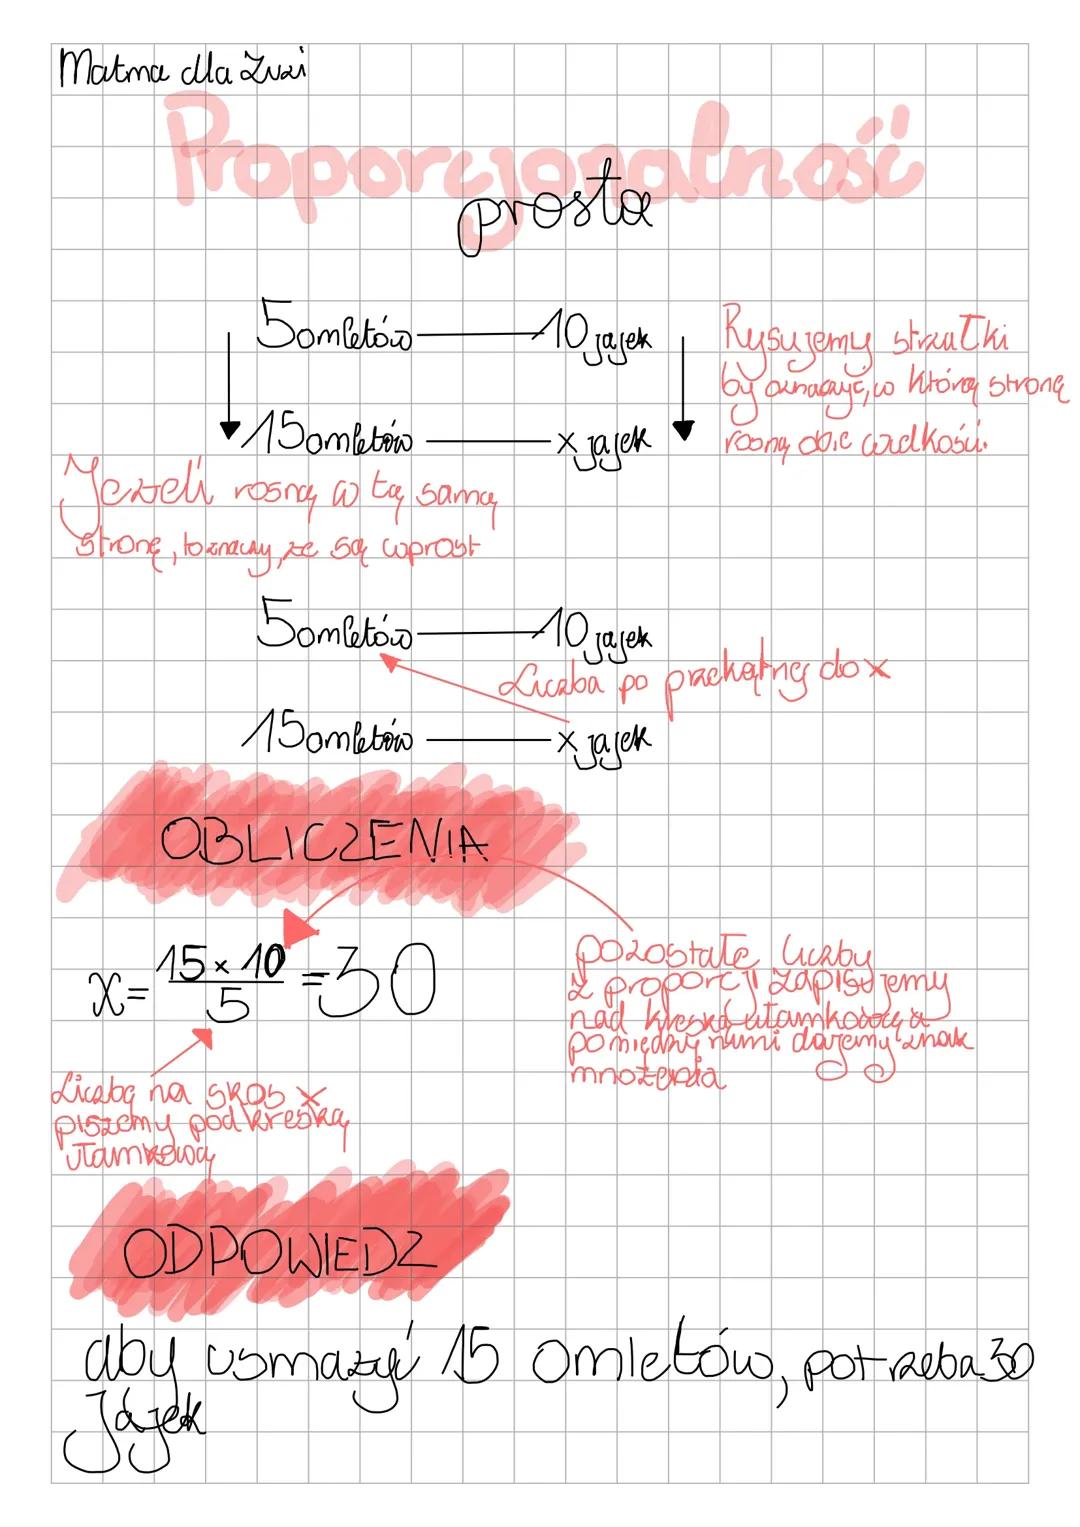 Matma dla Zuzi
Proporcjonalność
prosta
5 omletów — 10 jajek
15 omletów — x jajek
Rysujemy strzałki
by oznaczyć, w którą stronę
rosną obie wielkości.
Jeżeli rosną w tą samą
stronę, to znaczy, że są wprost
5 omletów — 10 jajek
Liczba po przekątnej do x
15 omletów — x jajek
OBLICZENIA
x = 15 × 10 / 5 = 30
pozostałe liczby
z proporcji zapisujemy
nad kreską ułamkową a
pomiędzy nimi dajemy znak
mnożenia
Liczbę na skos x
piszemy pod kreską
ułamkową
ODPOWIEDZ
aby usmażyć 15 omletów, potrzeba 30
jajek